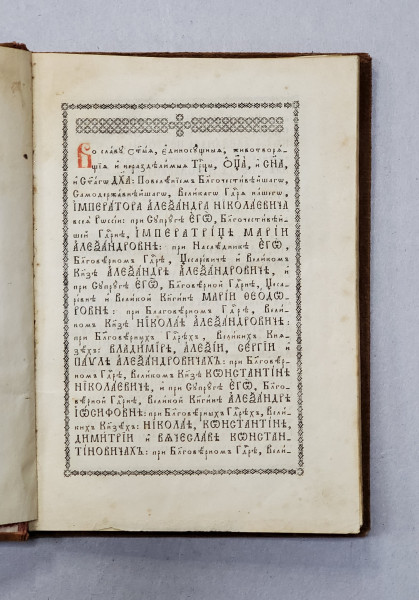 Во славу ст҃ыѧ, є҆диносꙋщныѧ, животворѧ-
щїѧ и҆ нераздѣлимыѧ Трⷪ҇цы, Ѻ҆Ц҃А̀, и҆ СН҃А,
и҆ Ст҃агѡ ДХ҃А: Повелѣнїемъ Бл҃гочестивѣйшагѡ,
Самодержавнѣйшагѡ, Великагѡ Гдⷭ҇рѧ нашегѡ,
І҆МПЕРАТОРА А҆ЛЕѮАНДРА НІКОЛАЕВИЧА
всеѧ Рѡссїи: при Сꙋпрꙋгѣ Є҆ГѠ̀, Бл҃гочестивѣй-
шей Гдⷭ҇рнѣ, І҆МПЕРАТРИЦѢ МАРІИ
А҆ЛЕѮАНДРОВНѢ: при Наслѣдникѣ Є҆ГѠ̀,
Бл҃говѣрномъ Гдⷭ҇рѣ, Цесаревичѣ и҆ Великомъ
Кн҃зѣ А҆ЛЕѮАНДРѢ А҆ЛЕѮАНДРОВИЧѢ, и҆
при Сꙋпрꙋгѣ Є҆ГѠ̀, Бл҃говѣрной Гдⷭ҇рнѣ, Цеса-
ревнѣ и҆ Великой Кн҃гинѣ МАРІИ ѲЕОДѠ-
РОВНѢ: при Бл҃говѣрномъ Гдⷭ҇рѣ, Велико-
мъ Кн҃зѣ НІКОЛАѢ А҆ЛЕѮАНДРОВИЧѢ:
при Бл҃говѣрныхъ Гдⷭ҇рѣхъ, Великихъ Кнѧ-
зѣхъ: ВЛАДИМІРѢ, А҆ЛЕѮІИ, СЕРГІИ и҆
ПАѴЛѢ А҆ЛЕѮАНДРОВИЧАХЪ: при Бл҃говѣ-
рномъ Гдⷭ҇рѣ, Великомъ Кн҃зѣ КѠНСТАНТІНѢ
НІКОЛАЕВИЧѢ, и҆ при Сꙋпрꙋгѣ Є҆ГѠ̀, Бл҃го-
вѣрной Гдⷭ҇рнѣ, Великой Кн҃гинѣ А҆ЛЕѮАНДРѢ
І҆ѠСИФОВНѢ: при Бл҃говѣрныхъ Гдⷭ҇рѣхъ, Вели-
кихъ Кн҃зѣхъ: НІКОЛАѢ, КѠНСТАНТІНѢ,
ДИМИТРІИ и҆ ВѦЧЕСЛАВѢ КѠНСТАН-
ТІНОВИЧАХЪ: при Бл҃говѣрномъ Гдⷭ҇рѣ, Вели-